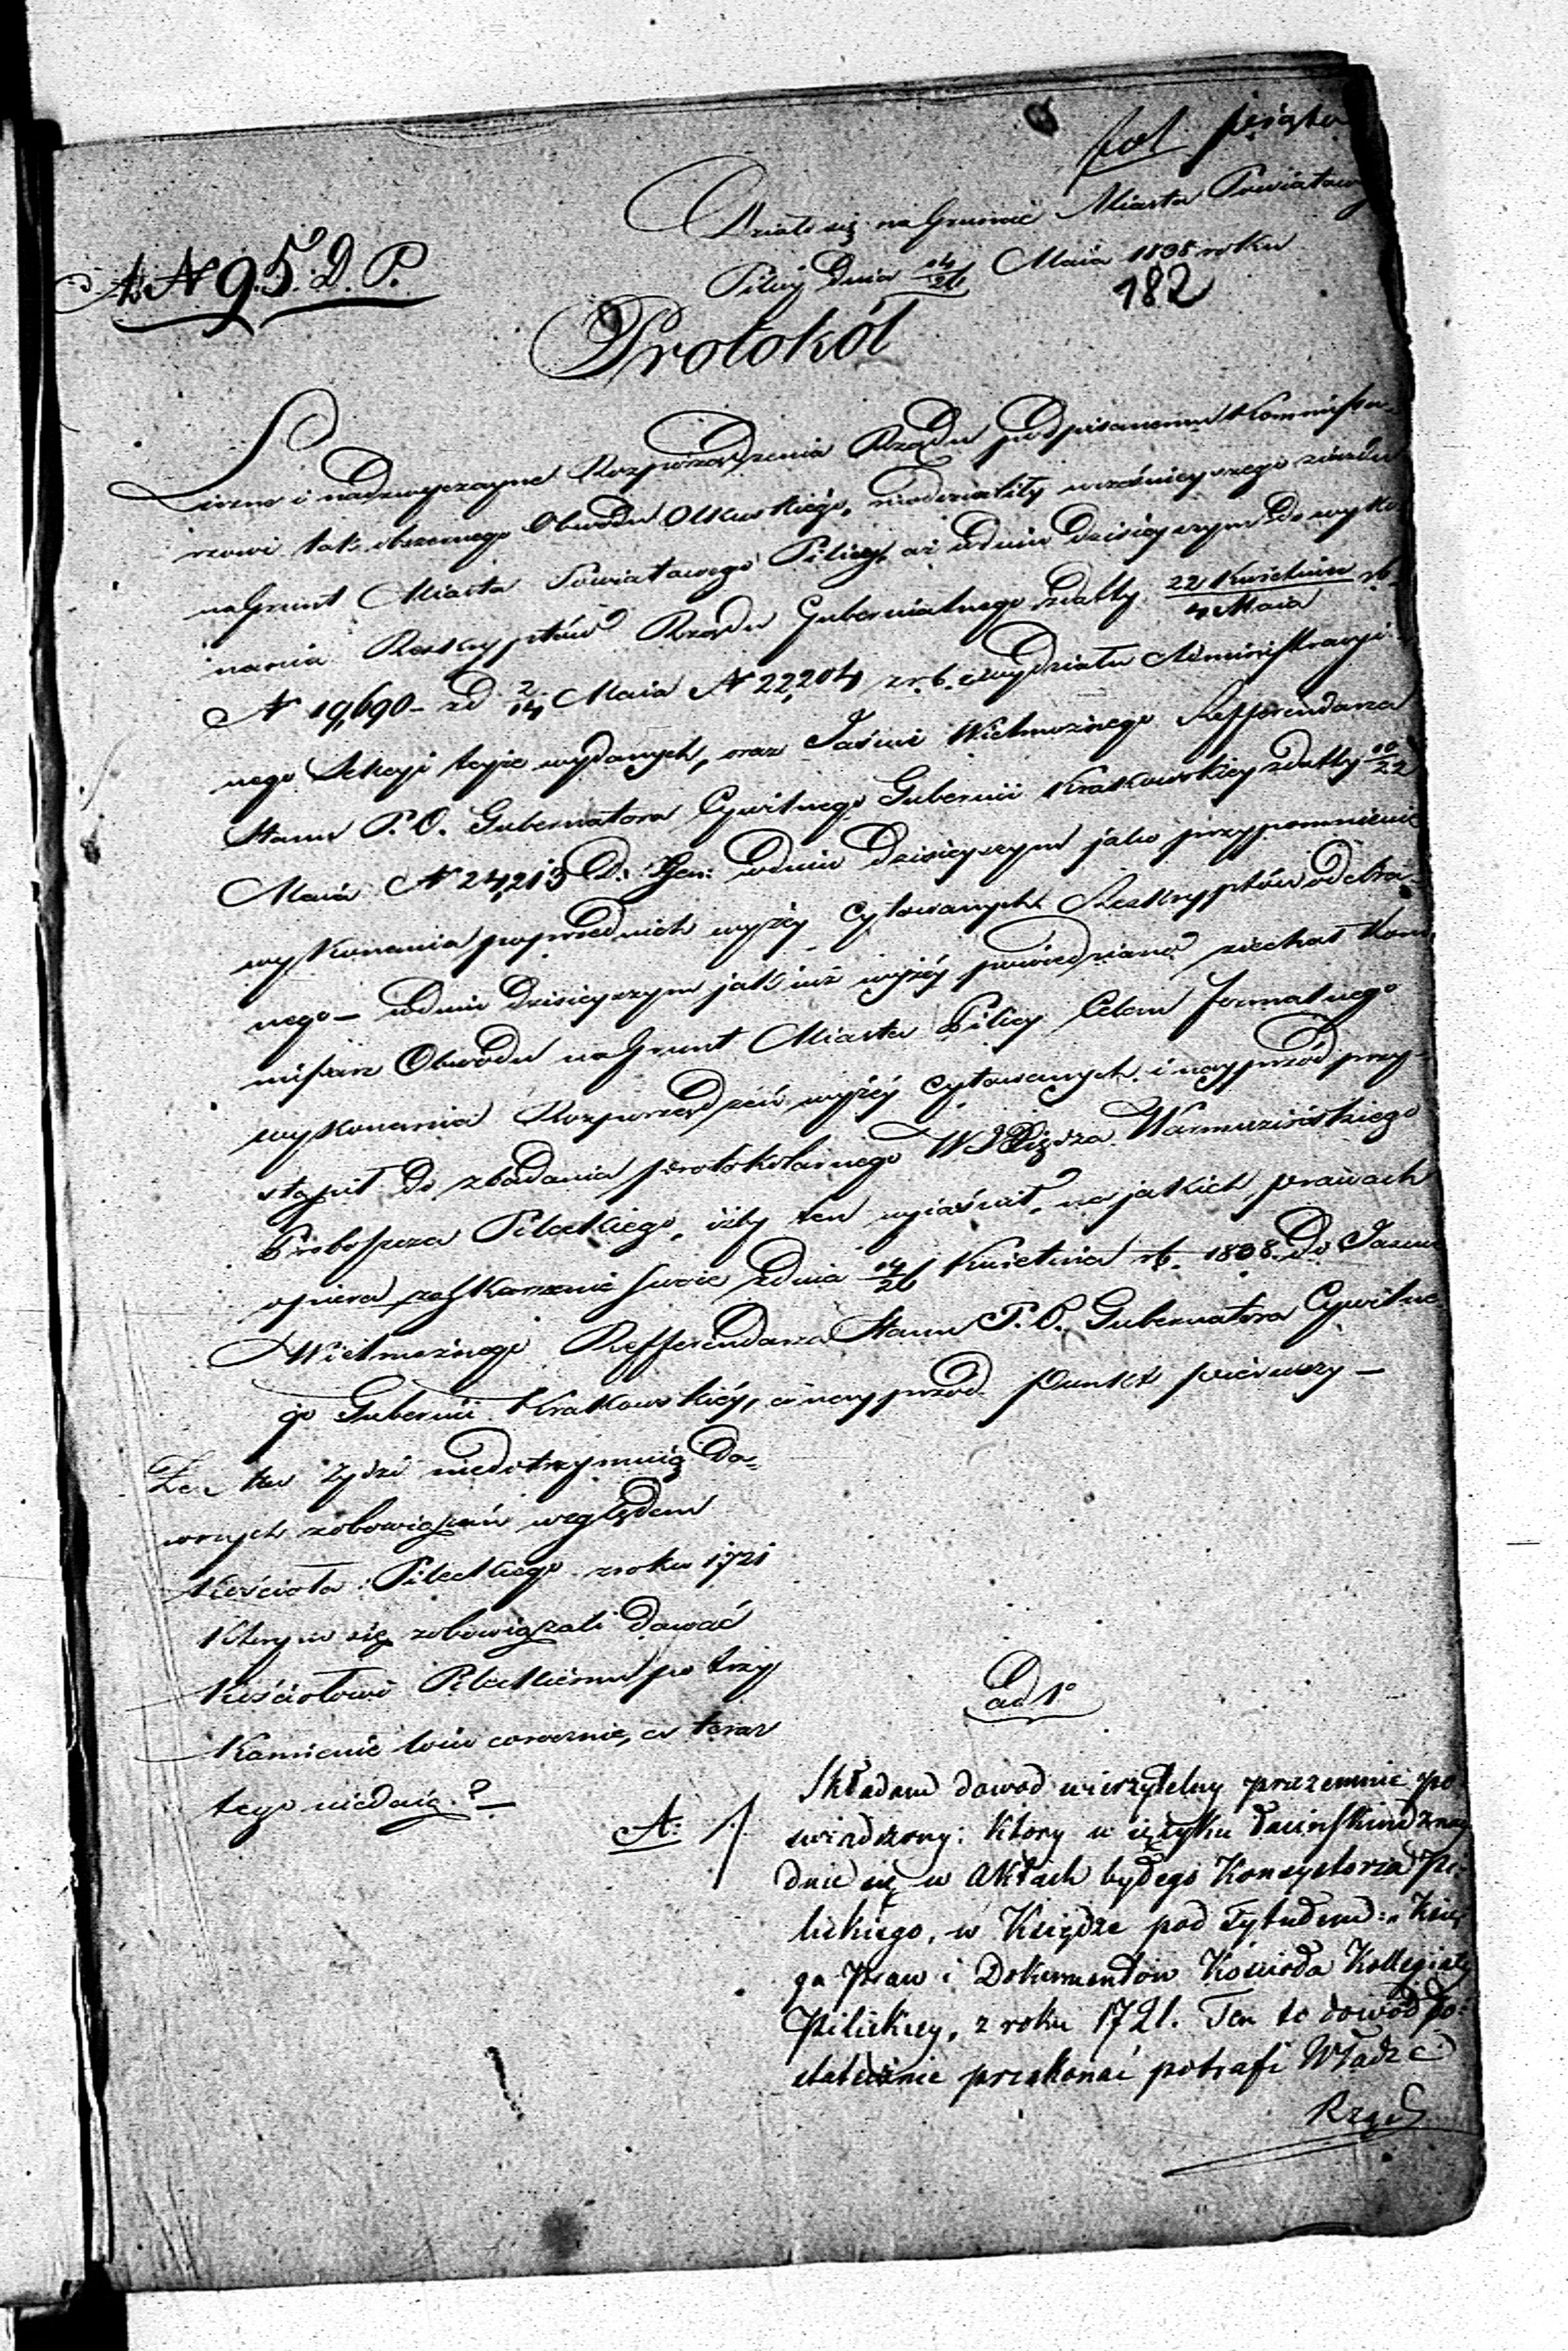 fol piąta
Działo się na Gruncie Miasta Powiatow
Pilicy Dnia 14/26 Maia 1838 roku
182
Ad N 95. D. P.
Protokół
Liczne i nadzwyczayne Rozporządzenia Rządu podpisanemu Kommissa-
rzowi tak obszernego Obwodu Olkuskiego, niedozwoliły wcześnieyszego ziazdu
na Grunt Miasta Powiatowego Pilicy, aż w dniu dzisieyszym do wyko
nania Reskryptów Rządu Gubernialnego z datty 22 Kwietnia/4 Maia rb.
N 19,690 – z d. 2/14 Maia N 22,204 z r. b. z wydziału Administracyi-
nego Sekcyi teyże wydanych, oraz Jaśnie Wielmożnego Refferendarza
Stanu P. O. Gubernatora Cywilnego Gubernii Krakowskiey z datty 10/22
Maia N 24,213 D: Gen: w dniu dzisieyszym jako przypomnienie
wykonania poprzednich wyżey cytowanych Reskryptów odebra-
nego – w dniu dzisieyszym jak iuż wyżey powiedziano ziechał Kom
missarz Obwodu na Grunt Miasta Pilicy Celem formalnego
wykonania Rozporządzeń wyżéy cytowanych i nayprzód przy-
stąpił do zbadania protokolarnego W. Xiędza Warmuzińskiego
Proboszcza Pileckiego, iżby ten wyiaśnił, na jakich prawach
opiera zaskarżenie swoie z dnia 14/26 Kwietnia rb. 1838. do Jaśnie
Wielmożnego Refferendarza Stanu P. O. Gubernatora Cywilne
go Gubernii Krakowskiéy, a nayprzód punkt pierwszy –
Że tu Żydzi niedotrzymuią da-
wnych zobowiązań względem
Kościoła Pileckiego z roku 1721
którym się zobowiązali dawać
Kościołowi Pileckiemu po trzy
Kamienie łoiu corocznie, a teraz
tego niedaią. ? –
ad 1º
A:
Składam dowod wierzytelny przezemnie po
świadczony: ktory w ięzyku Łacińskim znay
duie się w Aktach byłego Konsystorza Pi-
lickiego, w Księdze pod tytułem: „Księ
ga Praw i Dokumentow Kościoła Kollegiaty
Pilickiey, z roku 1721. Ten to dowód do-
statecznie przekonać potrafi Władzę
Rząd